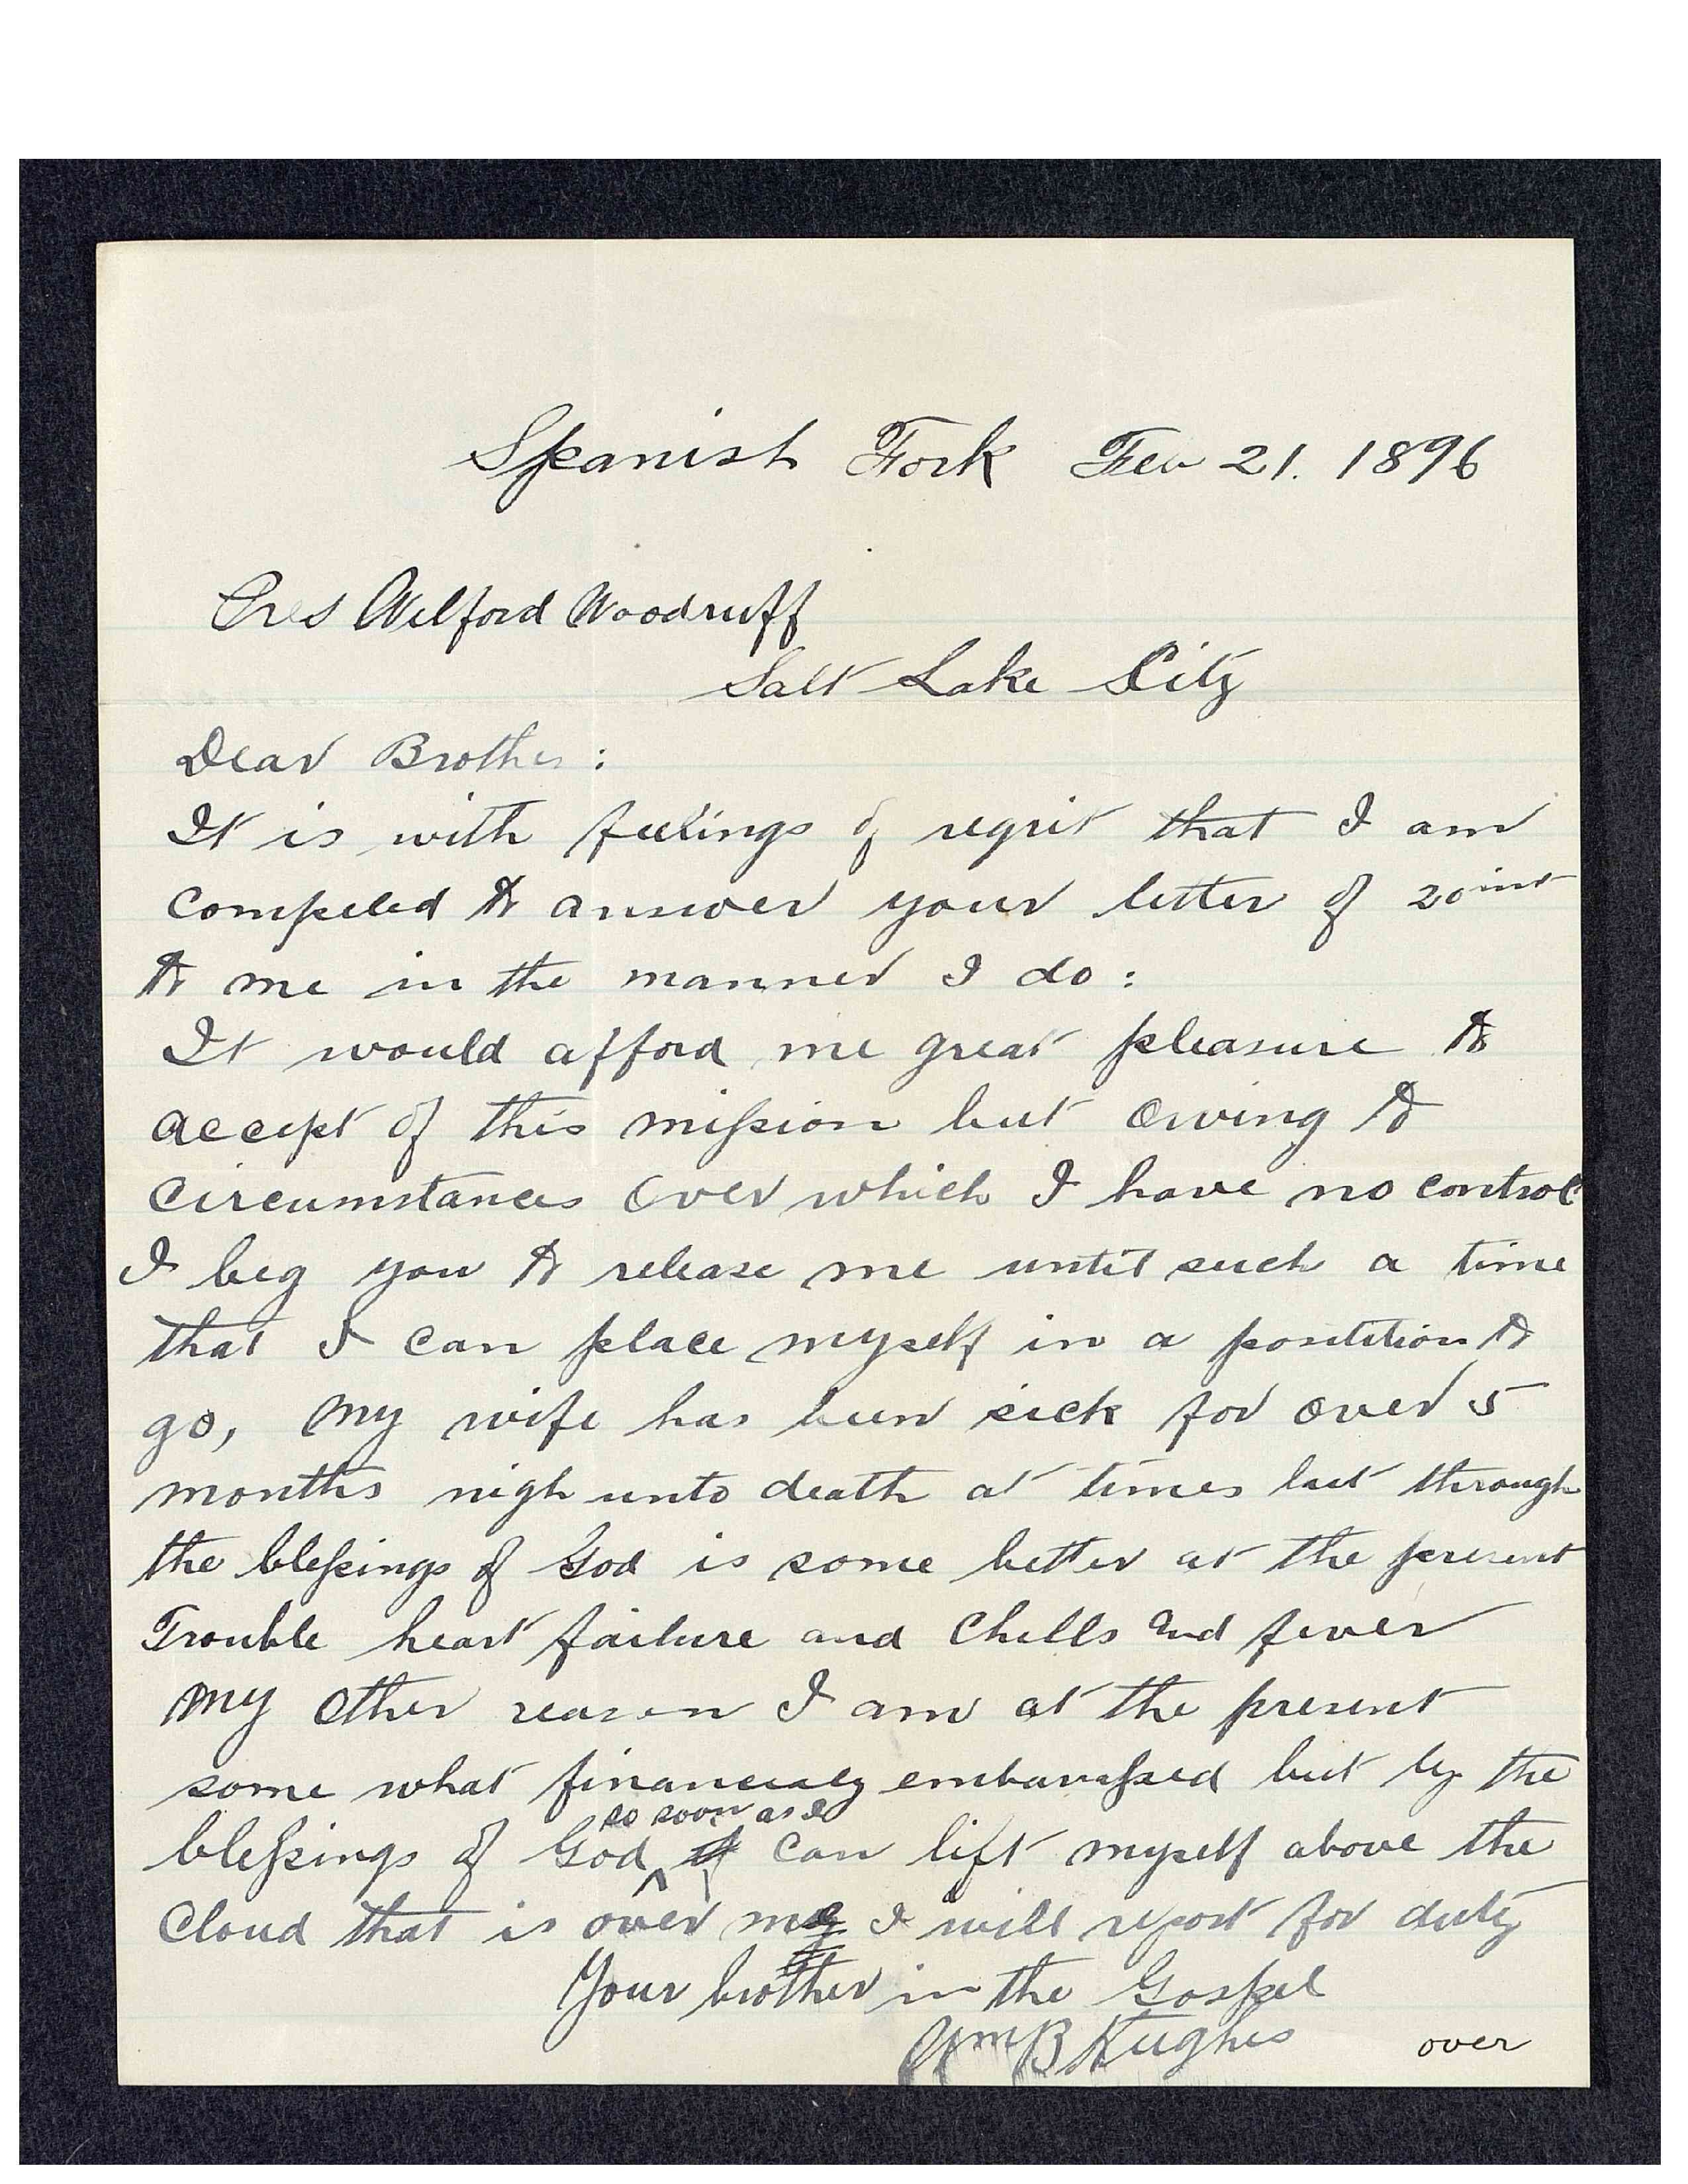 Spanish Fork Feb 21. 1896
Pres Wilford Woodruff
Salt Lake City
Dear Brother:
It is with feelings of regrit that I am
compeled to answer your letter of 20 inst
to me in the manner I do:
It would afford me great pleasure to
accept of this mission but owing to
circumstances over which I have no control
I beg you to release me until such a time
that I can place myself in a position to
go, My wife has been sick for over 5
months nigh unto death at times but through
the blessings of God is some better at the present
Trouble heart failure and Chills and fever
My other reason I am at the present
some what financialy embarassed but by the
so soon as I
blessings of God can lift myself above the
Cloud that is over me I will report for duty
Your brother in the Gospel
Wm B Hughes
over